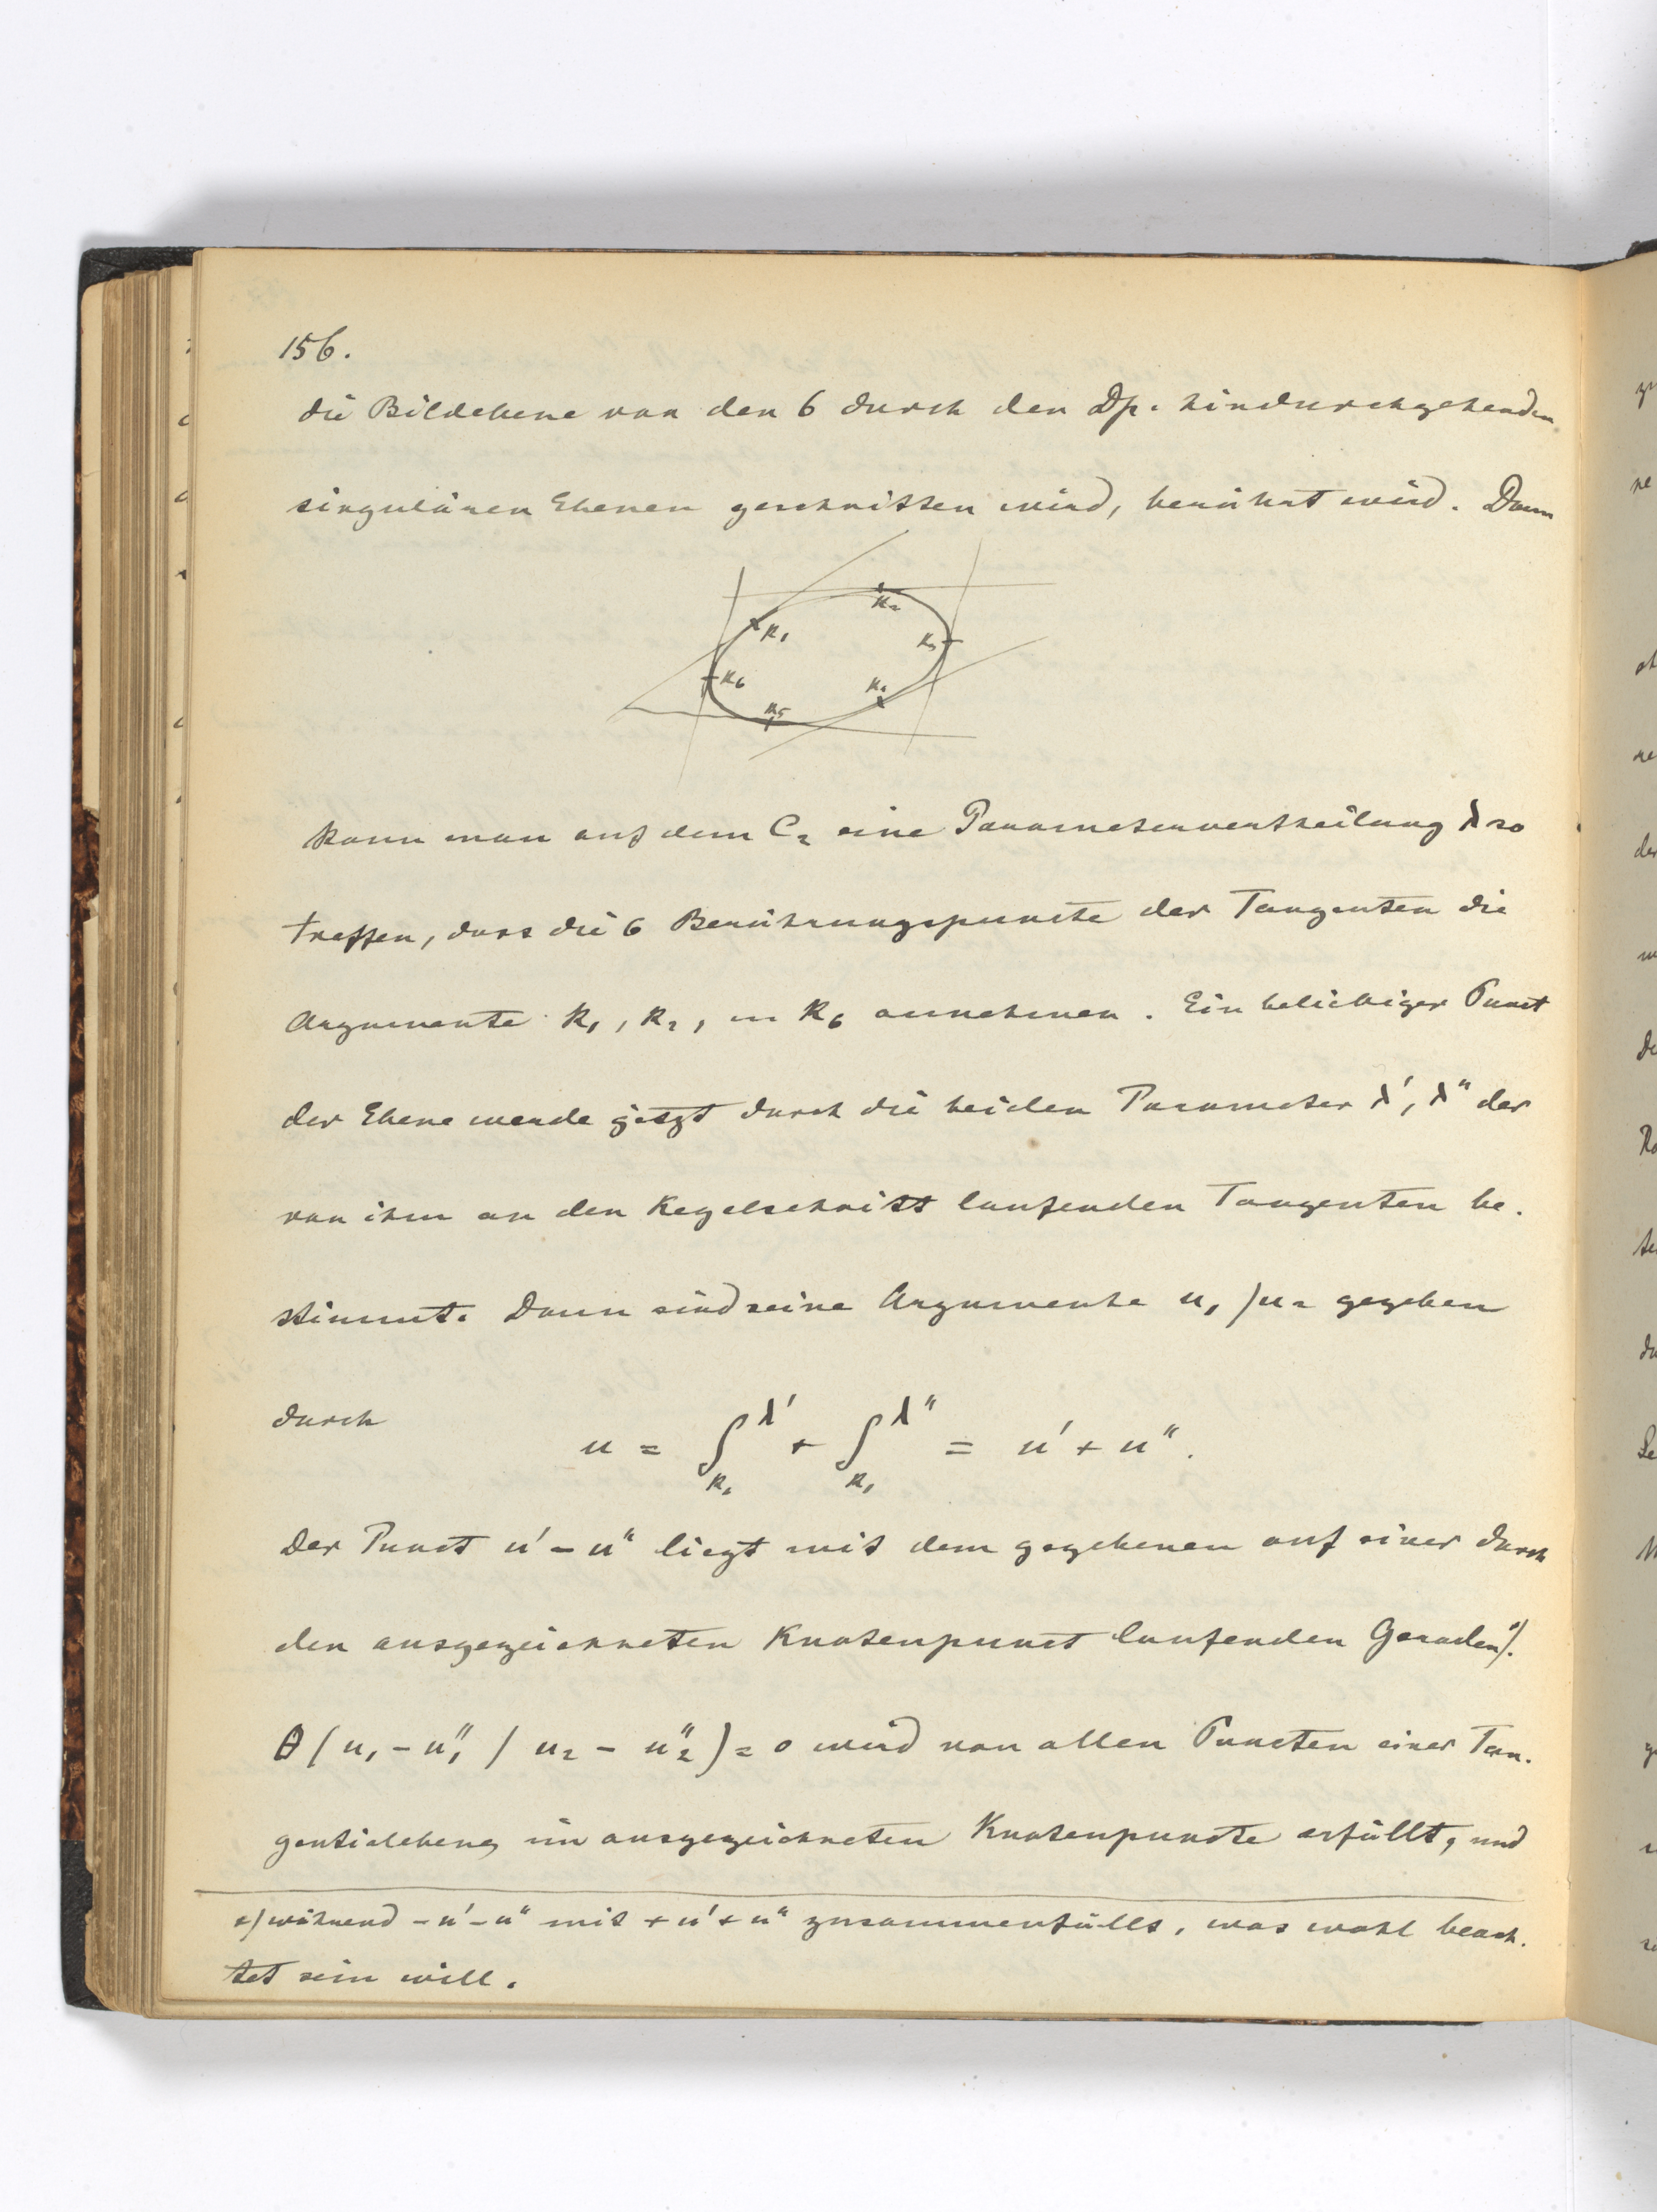 156.
die Bildebene von den 6 durch den Dp. hindurchgehenden
singulären Ebenen geschnitten wird, berührt wird. Dann
k₁
k₂
k₃
k₄
k₅
k₆
kann man auf dem C₂ eine Parametervertheilung λ so
treffen, dass die 6 Berührungspuncte der Tangenten die
Argumente k₁, k₂, ... k₆ annehmen. Ein beliebiger Punct
der Ebene werde jetzt durch die beiden Parameter λ', λ" der
von ihm an den Kegelschnitt laufenden Tangenten be-
stimmt. Dann sind seine Argumente u₁ / u₂ gegeben
durch
u = ∫_{k₁}^{λ'} + ∫_{k₁}^{λ"} = u' + u".
Der Punct u' - u" liegt mit dem gegebenen auf einer durch
den ausgezeichneten Knotenpunct laufenden Geraden*).
θ(u₁ - u₁" / u₂ - u₂") = 0 wird von allen Puncten einer Tan-
gentialebene im ausgezeichneten Knotenpuncte erfüllt, und
*) während - u' - u" mit + u' + u" zusammenfällt, was wohl beach-
tet sein will.